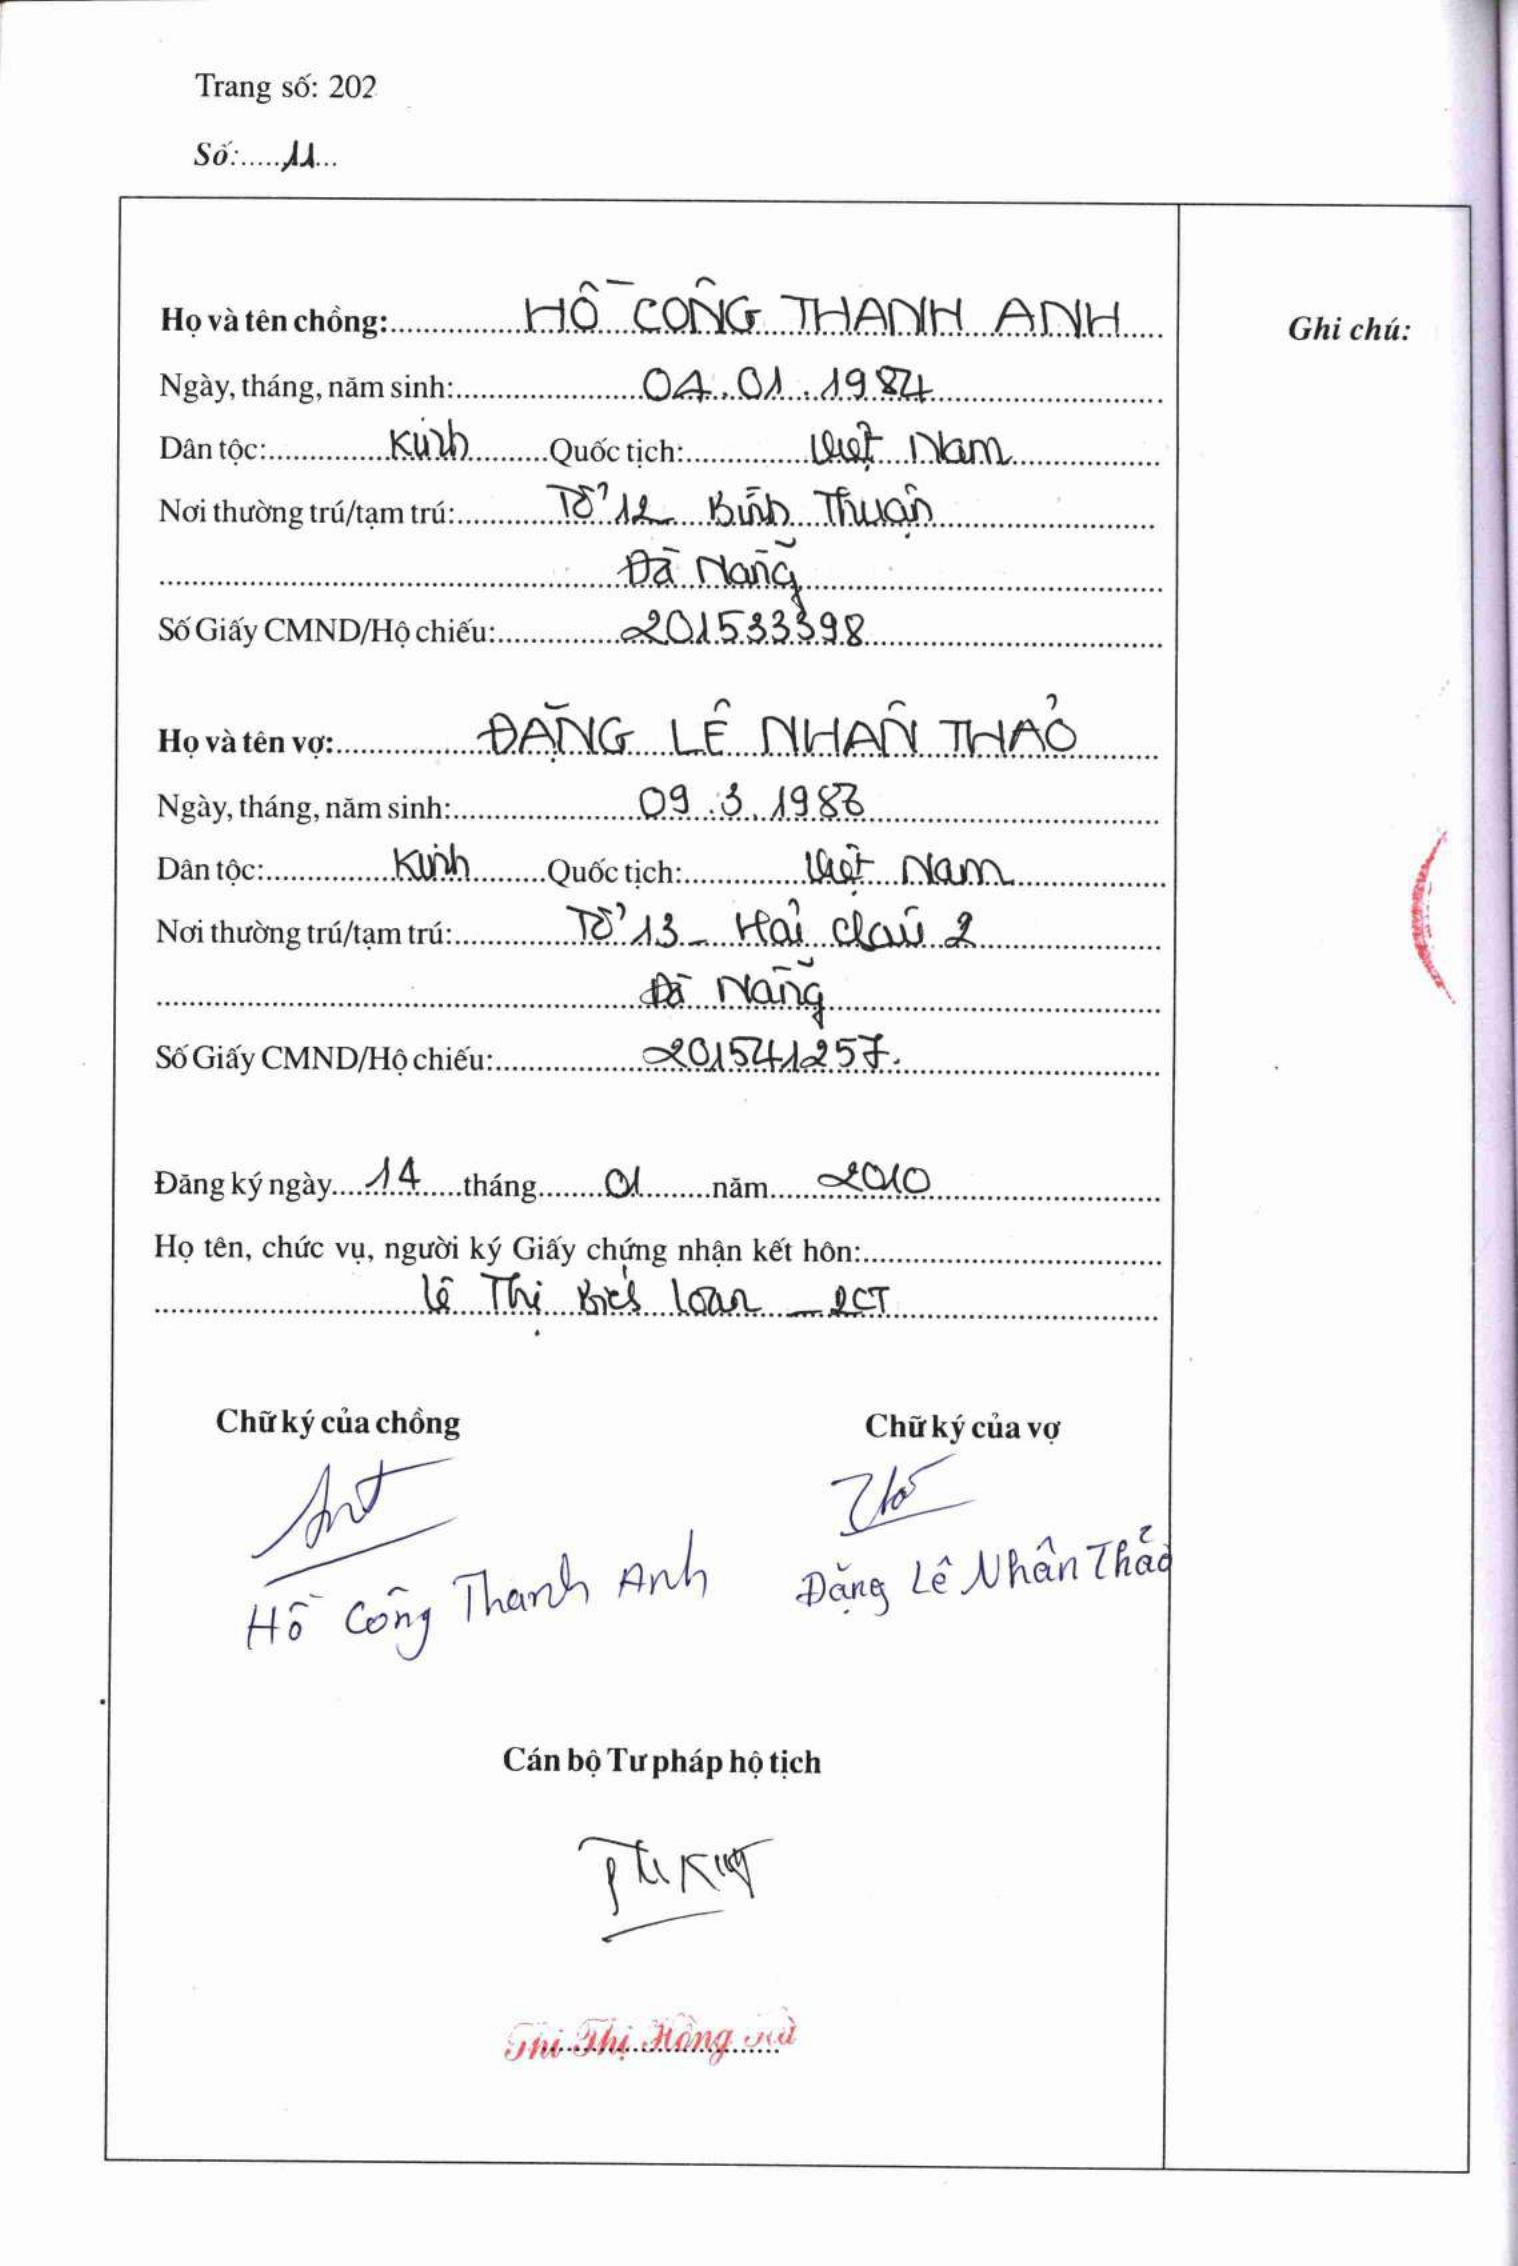 Trang số: 202
Số:.....11...
Họ và tên chồng: HỒ CÔNG THANH ANH
Ghi chú:
Ngày, tháng, năm sinh: 04.01.1984
Dân tộc: Kinh Quốc tịch: Việt Nam
Nơi thường trú/tạm trú: Tổ 12 Bình Thuận
Đà Nẵng
Số Giấy CMND/Hộ chiếu: 201533398
Họ và tên vợ: ĐẶNG LÊ NHÂN THẢO
Ngày, tháng, năm sinh: 09.3.198
Dân tộc: Kinh Quốc tịch: Việt Nam
Nơi thường trú/tạm trú: Tổ 13 - Hải Châu 2
Đà Nẵng
Số Giấy CMND/Hộ chiếu: 201541257.
Đăng ký ngày 14 tháng 01 năm 2010
Họ tên, chức vụ, người ký Giấy chứng nhận kết hôn:
Lê Thị Bích Loan - PCT
Chữ ký của chồng
Chữ ký của vợ
Hồ Công Thanh Anh
Đặng Lê Nhân Thảo
Cán bộ Tư pháp hộ tịch
Thị Hồng